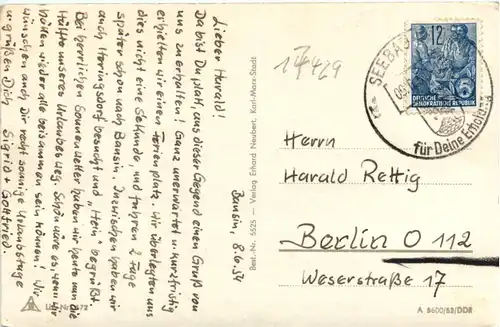 Bansin, 8.6.54
Lieber Harald!
Da bist Du platt, aus dieser Gegend einen Gruß von
uns zu erhalten! Ganz unerwartet u. kurzfristig
erhielten wir einen Ferienplatz. Wir überlegten uns
dies nicht eine Sekunde, und fuhren 2 Tage
später schon nach Bansin. Inzwischen haben wir
auch Heringsdorf besucht und "Hein" begrüßt.
Bei herrlichen Sonnenwetter haben wir heute nun die
Hälfte unseres Urlaubes weg. Schön wäre es, wenn wir
wieder alle beisammen sein können! Wir
wünschen auch dir recht sonnige Urlaubstage
u. grüßen Dich Sigrid + Gottfried.
Best.-Nr. 5525 — Verlag Erhard Neubert, Karl-Marx-Stadt
17429
SEEBAD
für Deine Erholung
12
DEUTSCHE
DEMOKRATISCHE REPUBLIK
Herrn
Harald Rettig
Berlin O 112
Weserstraße 17
A 5600/53/DDR